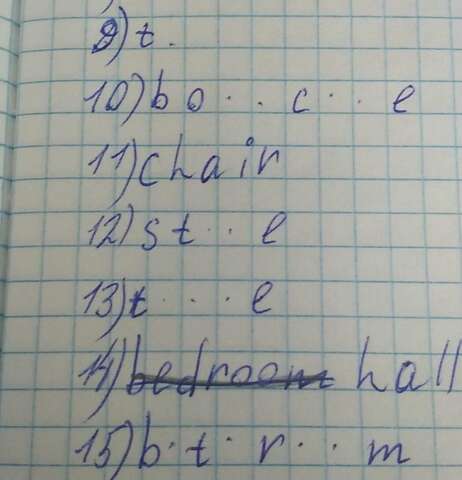 9) t.
10) b o . . c . . e
11) chair
12) s t . . e
13) t . . . e
14) bedroom hall
15) b . t . r . . m